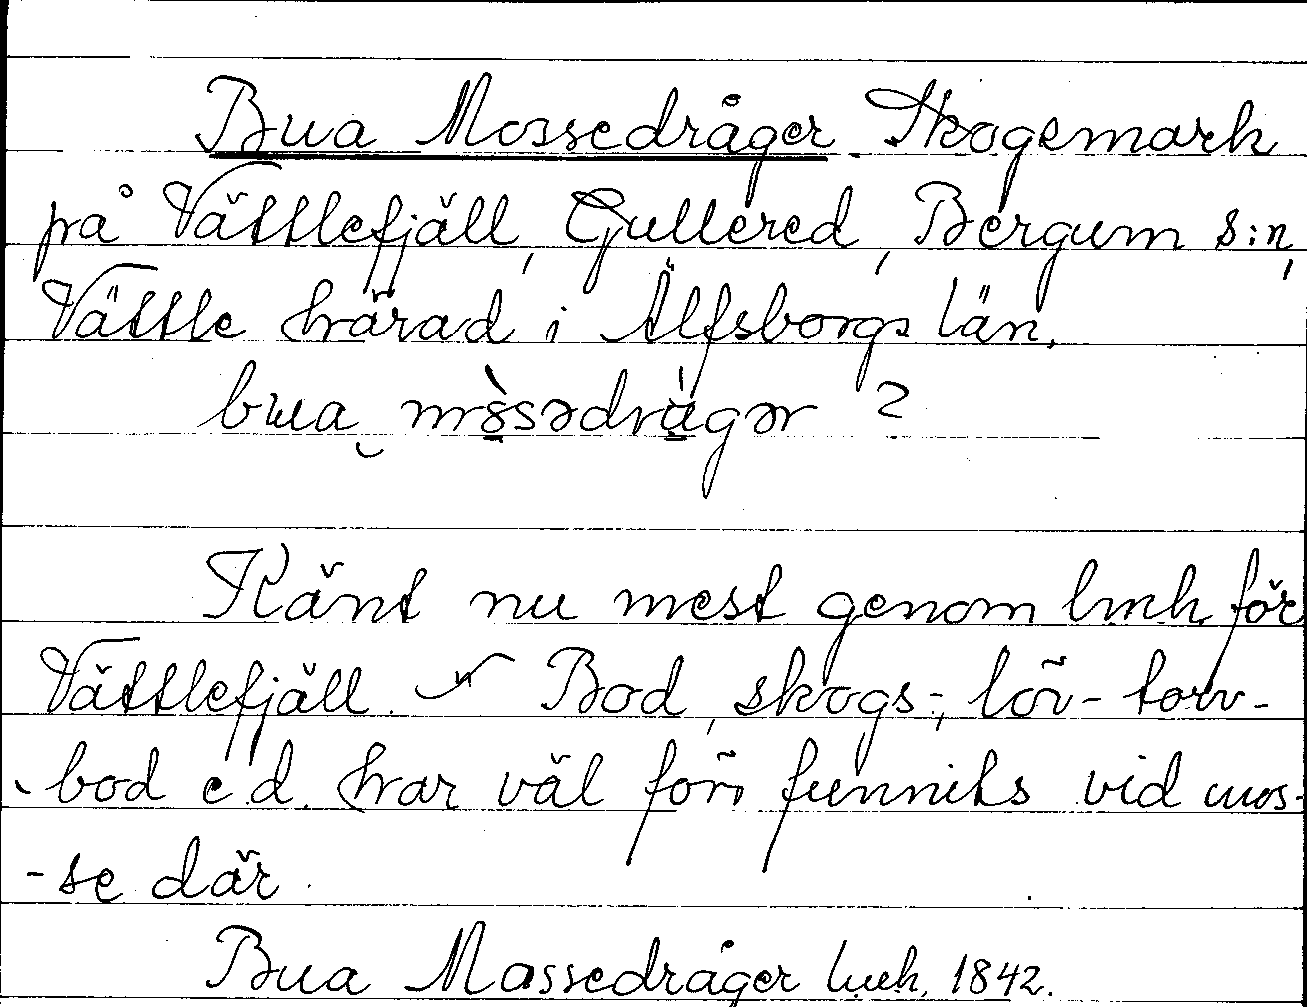 Bua Mossedråger. Skogsmark
på Vättlefjäll, Gullered, Bergum s:n,
Vättle härad i Älfsborgs län.
bɯa mòsədrågər ?
Känt nu mest genom lmk för
Vättlefjäll. Bod, skogs-, löv- torv-
-bod e.d. har väl förr funnits vid mos-
-se där.
Bua Massedråger lmk. 1842.